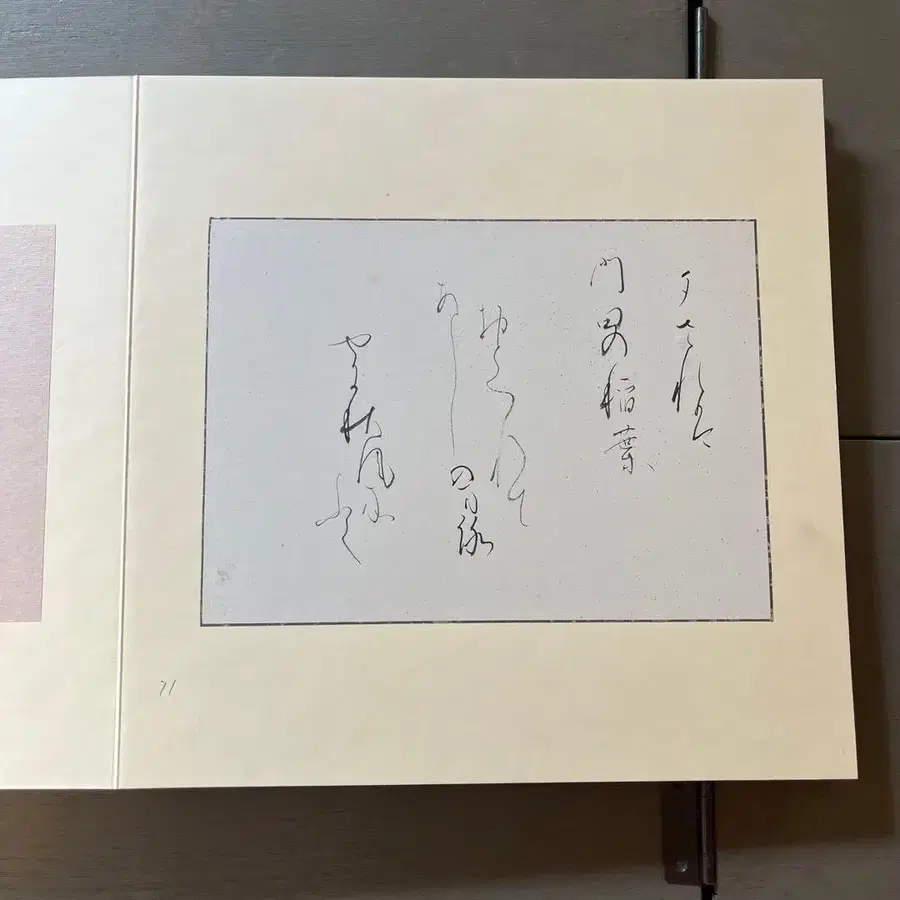 夕されは
門田の稲葉
おとつれて
あしのまろ
やに秋風そ
ふく
71